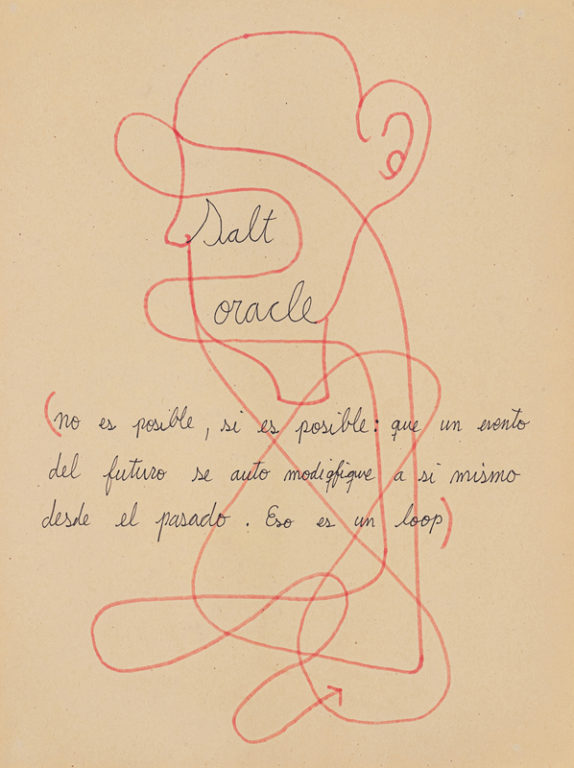 Salt
oracle
(no es posible, si es posible: que un evento
del futuro se auto modigfique a si mismo
desde el pasado. Eso es un loop)